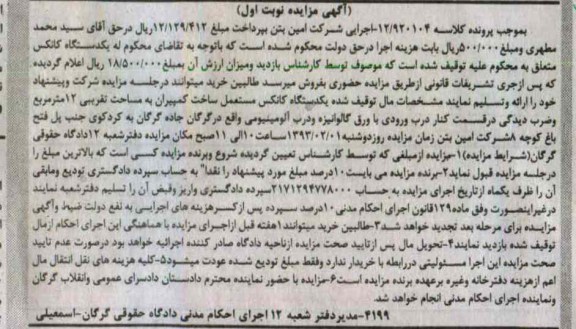 (آگهی مزایده نوبت اول)
بموجب پرونده کلاسه ۱۲/۹۲۰۱۰۴-اجرایی شرکت امین بتن بپرداخت مبلغ ۱۲/۱۲۹/۴۱۲ریال درحق آقای سید محمد
مطهری ومبلغ۵۰۰/۰۰۰ریال بابت هزینه اجرا درحق دولت محکوم شده است که باتوجه به تقاضای محکوم له یکدستگاه کانکس
متعلق به محکوم علیه توقیف شده است که موصوف توسط کارشناس بازدید ومیزان ارزش آن بمبلغ۱۸/۵۰۰/۰۰۰ ریال اعلام گردیده
که پس ازجری تشریفات قانونی ازطریق مزایده حضوری بفروش میرسد طالبین خرید میتوانند درجلسه مزایده شرکت وپیشنهاد
خود را ارائه وتسلیم نمایند مشخصات مال توقیف شده یکدستگاه کانکس مستعمل ساخت کمپیران به مساحت تقریبی ۱۲مترمربع
وضرب دیدگی درقسمت کنار درب ورودی با ورق گالوانیزه ودرب آلومینیومی واقع درگرگان جاده گرگان به کردکوی جنب پل فتح
باغ کوچه ۸شرکت امین بتن زمان مزایده روزدوشنبه۱۳۹۳/۰۲/۰۱ساعت۱۰الی ۱۱صبح مکان مزایده دفترشعبه ۱۲دادگاه حقوقی
گرگان(شرایط مزایده)۱-مزایده ازمبلغی که توسط کارشناس تعیین گردیده شروع وبرنده مزایده کسی است که بالاترین مبلغ را
درجلسه مزایده قبول نماید۲-برنده مزایده می بایست۱۰درصد مبلغ مورد پیشنهاد را نقدا" به حساب سپرده دادگستری تودیع ومابقی
آن را ظرف یکماه ازتاریخ اجرای مزایده به حساب ۲۱۷۱۲۹۴۷۷۸۰۰۰سپرده دادگستری واریز وقبض آن را تسلیم دفترشعبه نمایند
درغیراینصورت وفق ماده۱۲۹قانون اجرای احکام مدنی۱۰درصد سپرده پس ازکسرهزینه های اجرایی به نفع دولت ضبط وآگهی
مزایده برای مرحله بعد تجدید خواهد شد۳-طالبین خرید میتوانند ۱هفته قبل ازاجرای مزایده با هماهنگی این اجرای احکام ازمال
توقیف شده بازدید نمایند۴-تحویل مال پس ازتایید صحت مزایده ازناحیه دادگاه صادر کننده اجرائیه خواهد بود درصورت عدم تایید
صحت مزایده این اجرا مسئولیتی دررابطه با خریدار ندارد وفقط مبلغ تودیع شده عودت میشود۵-کلیه هزینه های نقل انتقال مال
اعم ازهزینه دفترخانه وغیره برعهده برنده مزایده است۶-مزایده با حضور نماینده محترم دادستان دادسرای عمومی وانقلاب گرگان
ونماینده اجرای احکام مدنی انجام خواهد شد.
۴۱۹۹-مدیردفتر شعبه ۱۲اجرای احکام مدنی دادگاه حقوقی گرگان-اسمعیلی